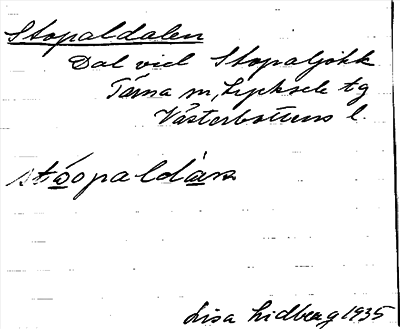 Stopaldalen
Dal vid Stopaljokk
Tärna m, Lycksele tg
Västerbottens l.
stå̱opaldàṉ
Lisa Lidberg 1935